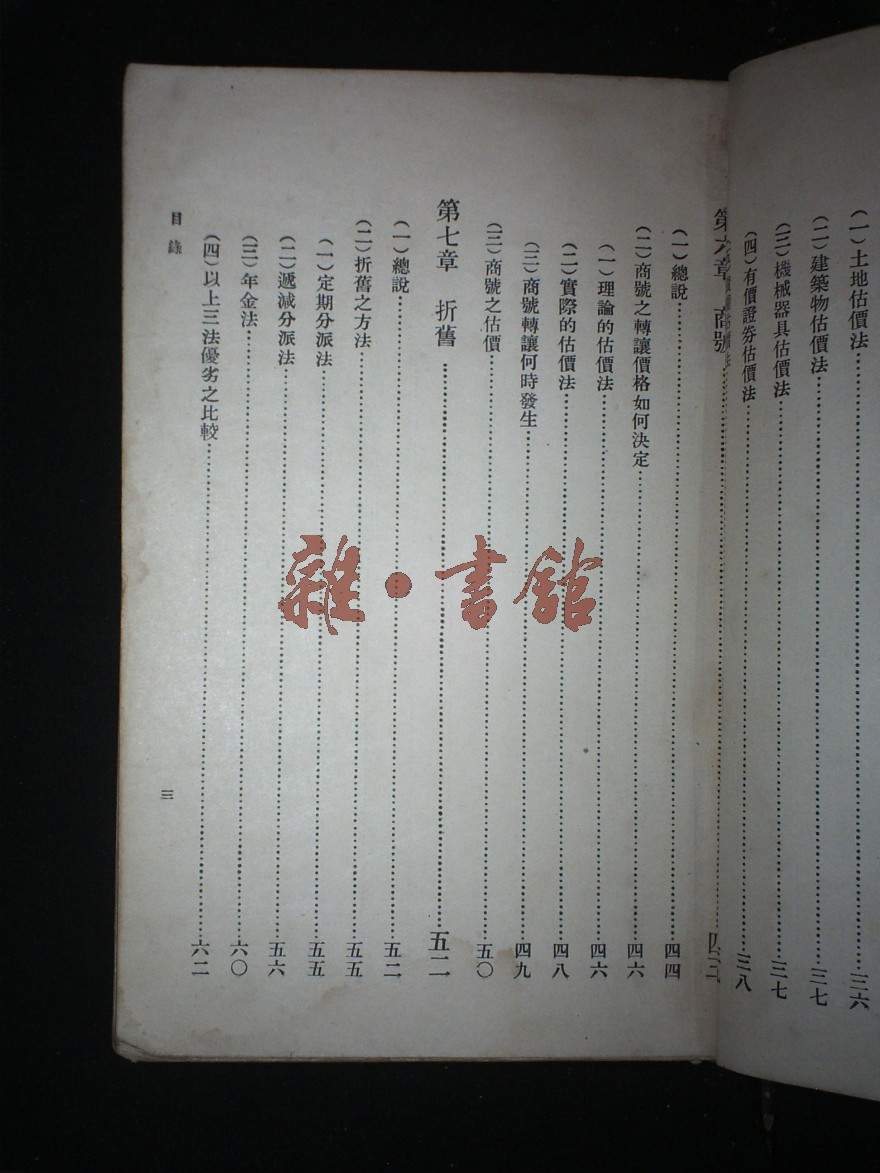 (一)土地估價法……三六
(二)建築物估價法……三七
(三)機械器具估價法……三七
(四)有價證券估價法……三八
第六章 商號……四
(一)總說……四四
(二)商號之轉讓價格如何決定……四六
(一)理論的估價法……四六
(二)實際的估價法……四八
(三)商號轉讓何時發生……四九
(三)商號之估價……五〇
第七章 折舊……五二
(一)總說……五二
(二)折舊之方法……五五
(一)定期分派法……五五
(二)遞減分派法……五六
(三)年金法……六〇
(四)以上三法優劣之比較……六二
目錄
三
雜·書館